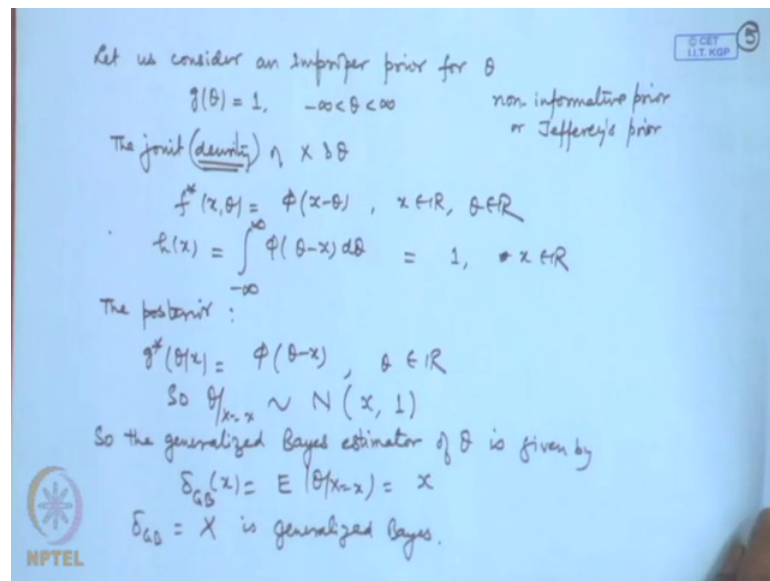 © CET
I.I.T. KGP
5
Let us consider an improper prior for θ
g(θ) = 1, -∞<θ<∞
non-informative prior
or Jefferey's prior
The joint (density) of X & θ
f*(x,θ) = φ(x-θ), x ∈ ℝ, θ ∈ ℝ
h(x) = ∫_{-∞}^{∞} φ(θ-x) dθ = 1, x ∈ ℝ
The posterior :
g*(θ|x) = φ(θ-x), θ ∈ ℝ
So θ/x=x ~ N(x, 1)
So the generalized Bayes estimator of θ is given by
δ_GB(x) = E (θ/x=x) = x
δ_GB = X is generalized Bayes.
NPTEL